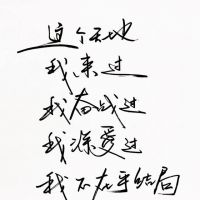 这个天地
我来过
我奋战过
我深爱过
我不在乎结局